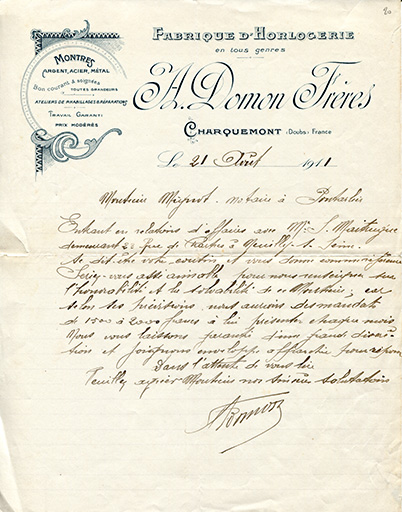 20
FABRIQUE D'HORLOGERIE
en tous genres
MONTRES
ARGENT, ACIER, MÉTAL
Bon courant & soignées
TOUTES GRANDEURS
ATELIERS DE RHABILLAGES & RÉPARATIONS
TRAVAIL GARANTI
PRIX MODÉRÉS
A. Domon Frères
CHARQUEMONT (Doubs) France
Le 21 Août 1911
Monsieur Mignot notaire à Pontarlier
Entrant en relations d'affaires avec Mr S.
demeurant 22 rue de Chartres à Neuilly s. Seine
se dit être votre cousin et vous donne comme référence
Seriez-vous assez aimable pour nous renseigner sur
l'honorabilité et la solvabilité de ce Monsieur; car
selon ses prévisions nous aurions des mandats
de 1500 à 2000 francs à lui présenter chaque mois
Nous vous laissons garantie d'une grande discré-
tion et joignons enveloppe affranchie pour réponse
Dans l'attente de vous lire
Veuillez agréer Monsieur nos sincères salutations
A Domon